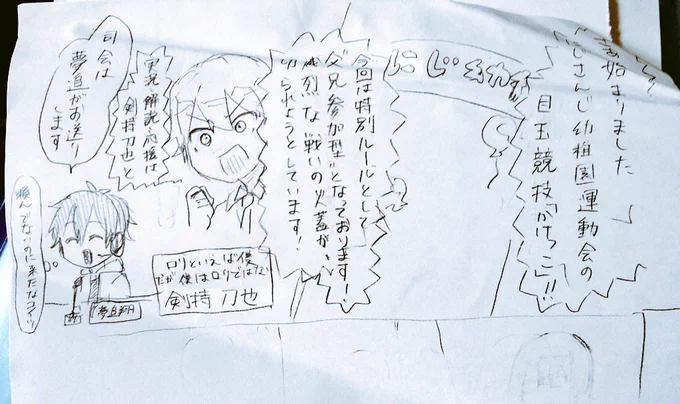 さあ始まりました
にじさんじ幼稚園運動会の
目玉競技「かけっこ」!!
にじ
今回は特別ルールとして
"父兄参加型"となっております!
熾烈な戦いの火蓋が、
切られようとしています!
実況・解説・応援は
剣持刀也と
司会は
夢追がお送り
します
ロリといえば僕
だが僕はロリではない
剣持 刀也
夢追翔
呼んでないのに来たなコイツ